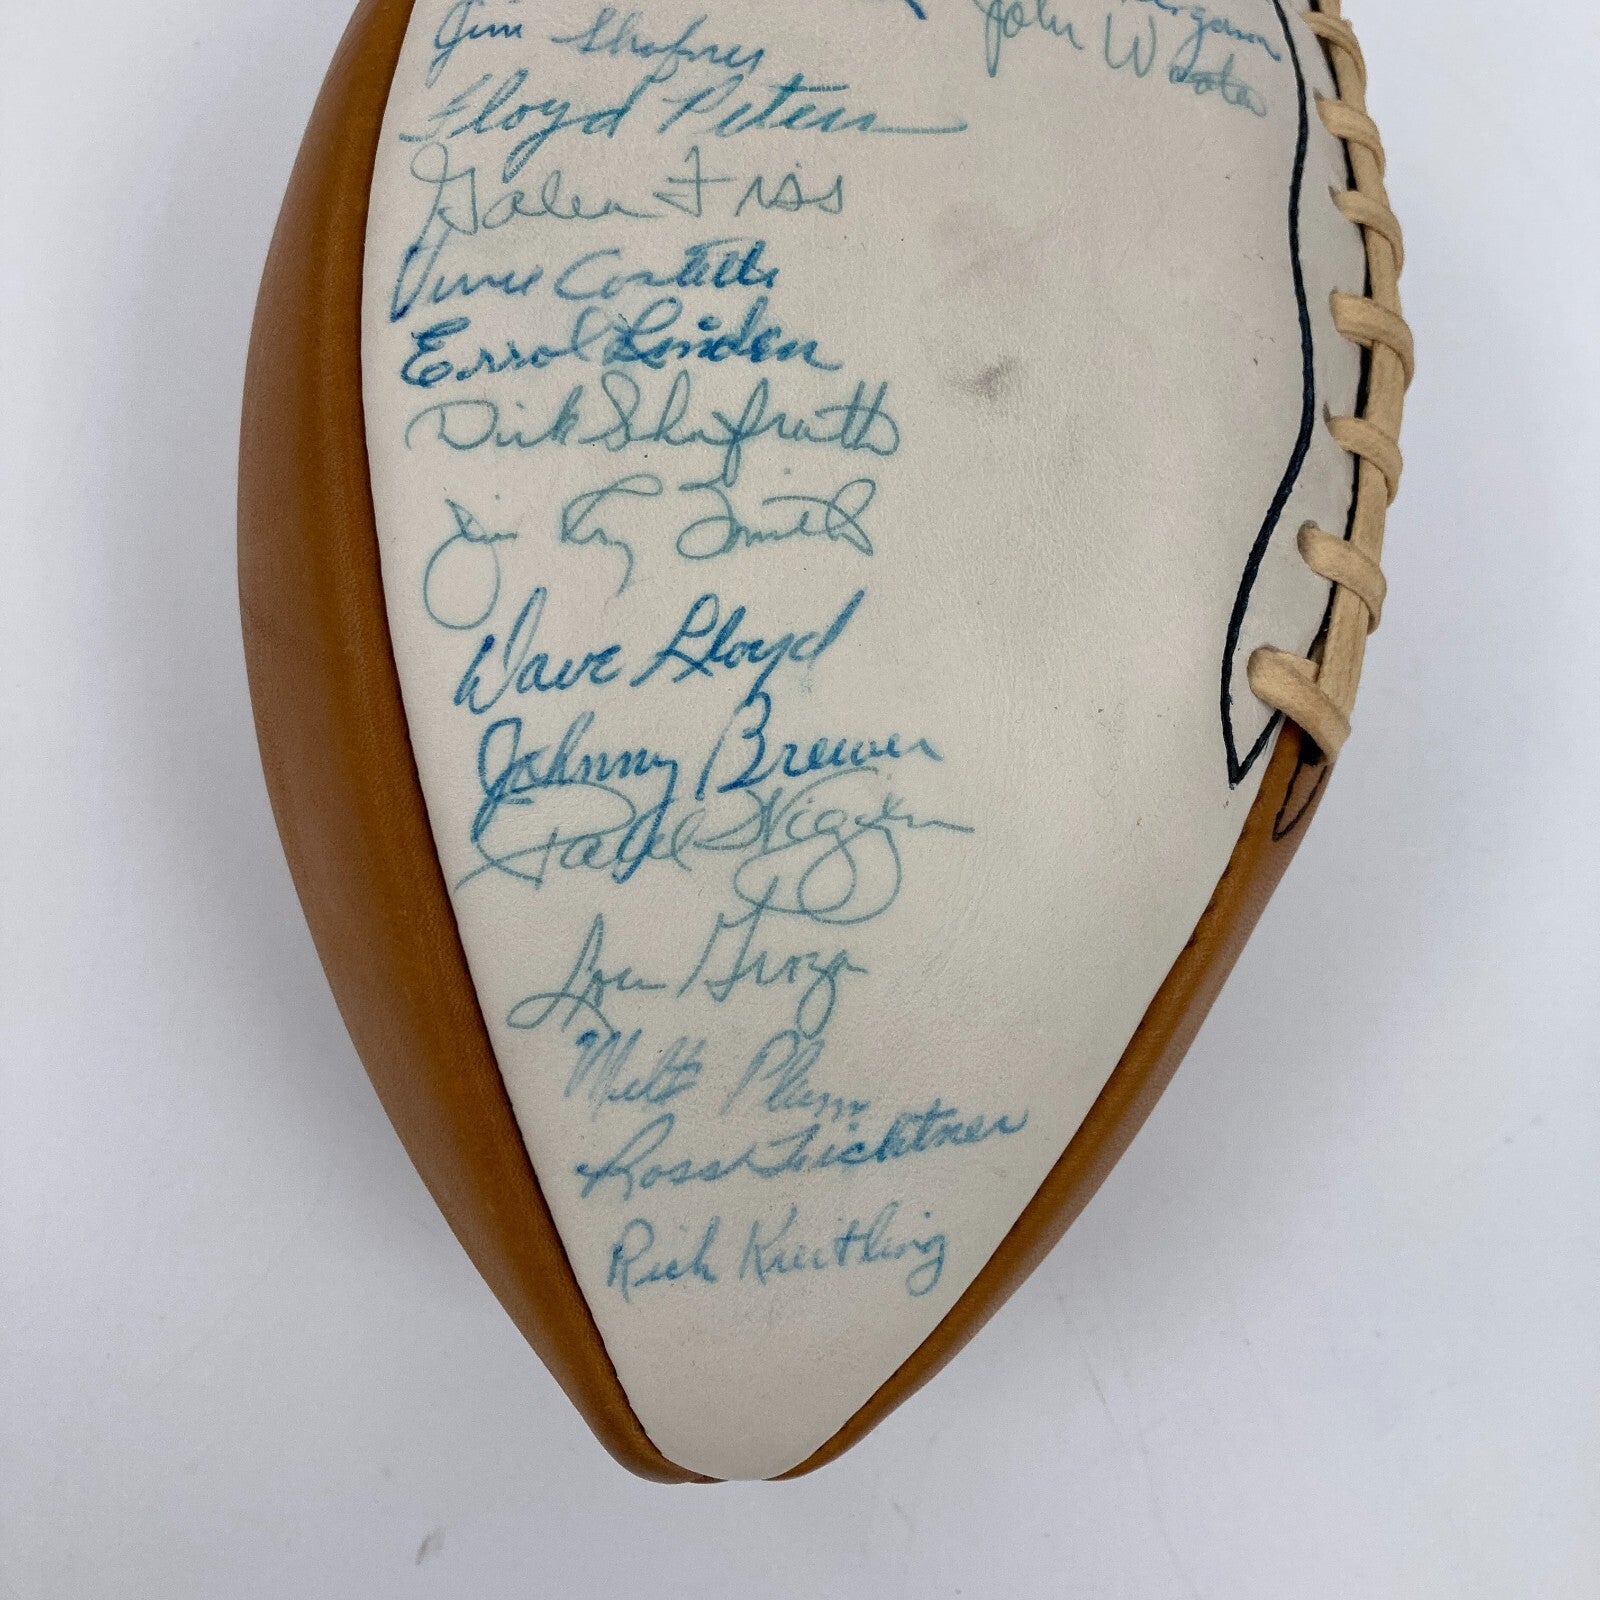 Jim Shofner
John Wooten
Floyd Peters
Galen Fiss
Vince Costello
Errol Linden
Dick Shafrath
Jim Ray Smith
Dave Lloyd
Johnny Brewer
Paul Wiggin
Lou Groza
Milt Plum
Ross Fichtner
Rich Kreitling